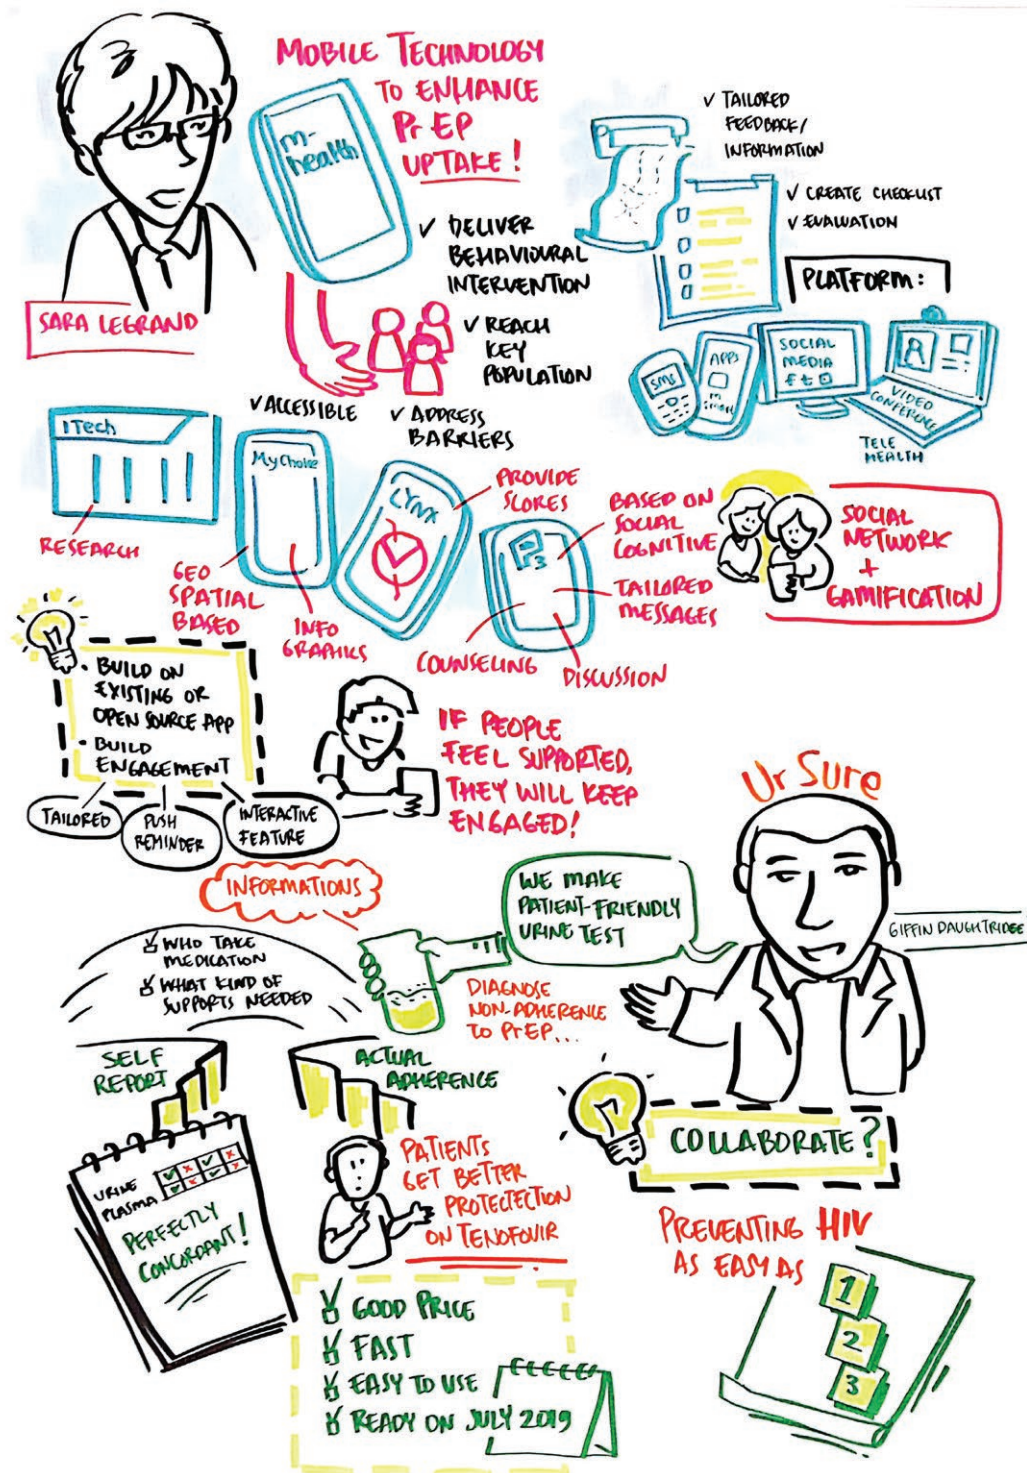 MOBILE TECHNOLOGY
TO ENHANCE
PrEP
UPTAKE!
m-
health
SARA LEGRAND
✓ DELIVER
BEHAVIOURAL
INTERVENTION
✓ REACH
KEY
POPULATION
✓ ACCESSIBLE
✓ ADDRESS
BARRIERS
✓ TAILORED
FEEDBACK/
INFORMATION
✓ CREATE CHECKLIST
✓ EVALUATION
PLATFORM:
SMS
APPS
SOCIAL
MEDIA
VIDEO
CONFERENCE
TELE
HEALTH
ITech
RESEARCH
MyChoice
GEO
SPATIAL
BASED
INFO
GRAPHICS
LYNX
PROVIDE
SCORES
P3
BASED ON
SOCIAL
COGNITIVE
TAILORED
MESSAGES
COUNSELING
DISCUSSION
SOCIAL
NETWORK
+
GAMIFICATION
• BUILD ON
EXISTING OR
OPEN SOURCE APP
• BUILD
ENGAGEMENT
TAILORED
PUSH
REMINDER
INTERACTIVE
FEATURE
IF PEOPLE
FEEL SUPPORTED,
THEY WILL KEEP
ENGAGED!
Ur Sure
GIFFIN DAUGHTRIDGE
WE MAKE
PATIENT-FRIENDLY
URINE TEST
INFORMATIONS
WHO TAKE
MEDICATION
WHAT KIND OF
SUPPORTS NEEDED
DIAGNOSE
NON-ADHERENCE
TO PrEP...
SELF
REPORT
ACTUAL
ADHERENCE
URINE
PLASMA
PERFECTLY
CONCORDANT!
PATIENTS
GET BETTER
PROTECTECTION
ON TENOFOVIR
GOOD PRICE
FAST
EASY TO USE
READY ON JULY 2019
COLLABORATE?
PREVENTING HIV
AS EASY AS
1
2
3